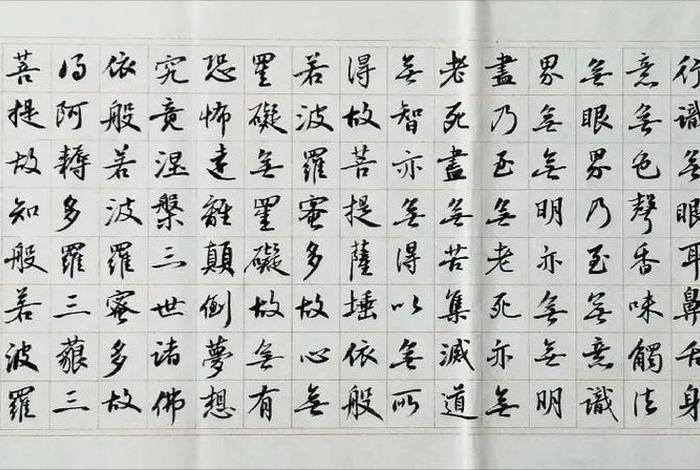 行識無眼耳鼻舌身
意無色聲香味觸法
無眼界乃至無意識
界無無明亦無無明
盡乃至無老死亦無
老死盡無苦集滅道
無智亦無得以無所
得故菩提薩埵依般
若波羅蜜多故心無
罣礙無罣礙故無有
恐怖遠離顛倒夢想
究竟涅槃三世諸佛
依般若波羅蜜多故
得阿耨多羅三藐三
菩提故知般若波羅